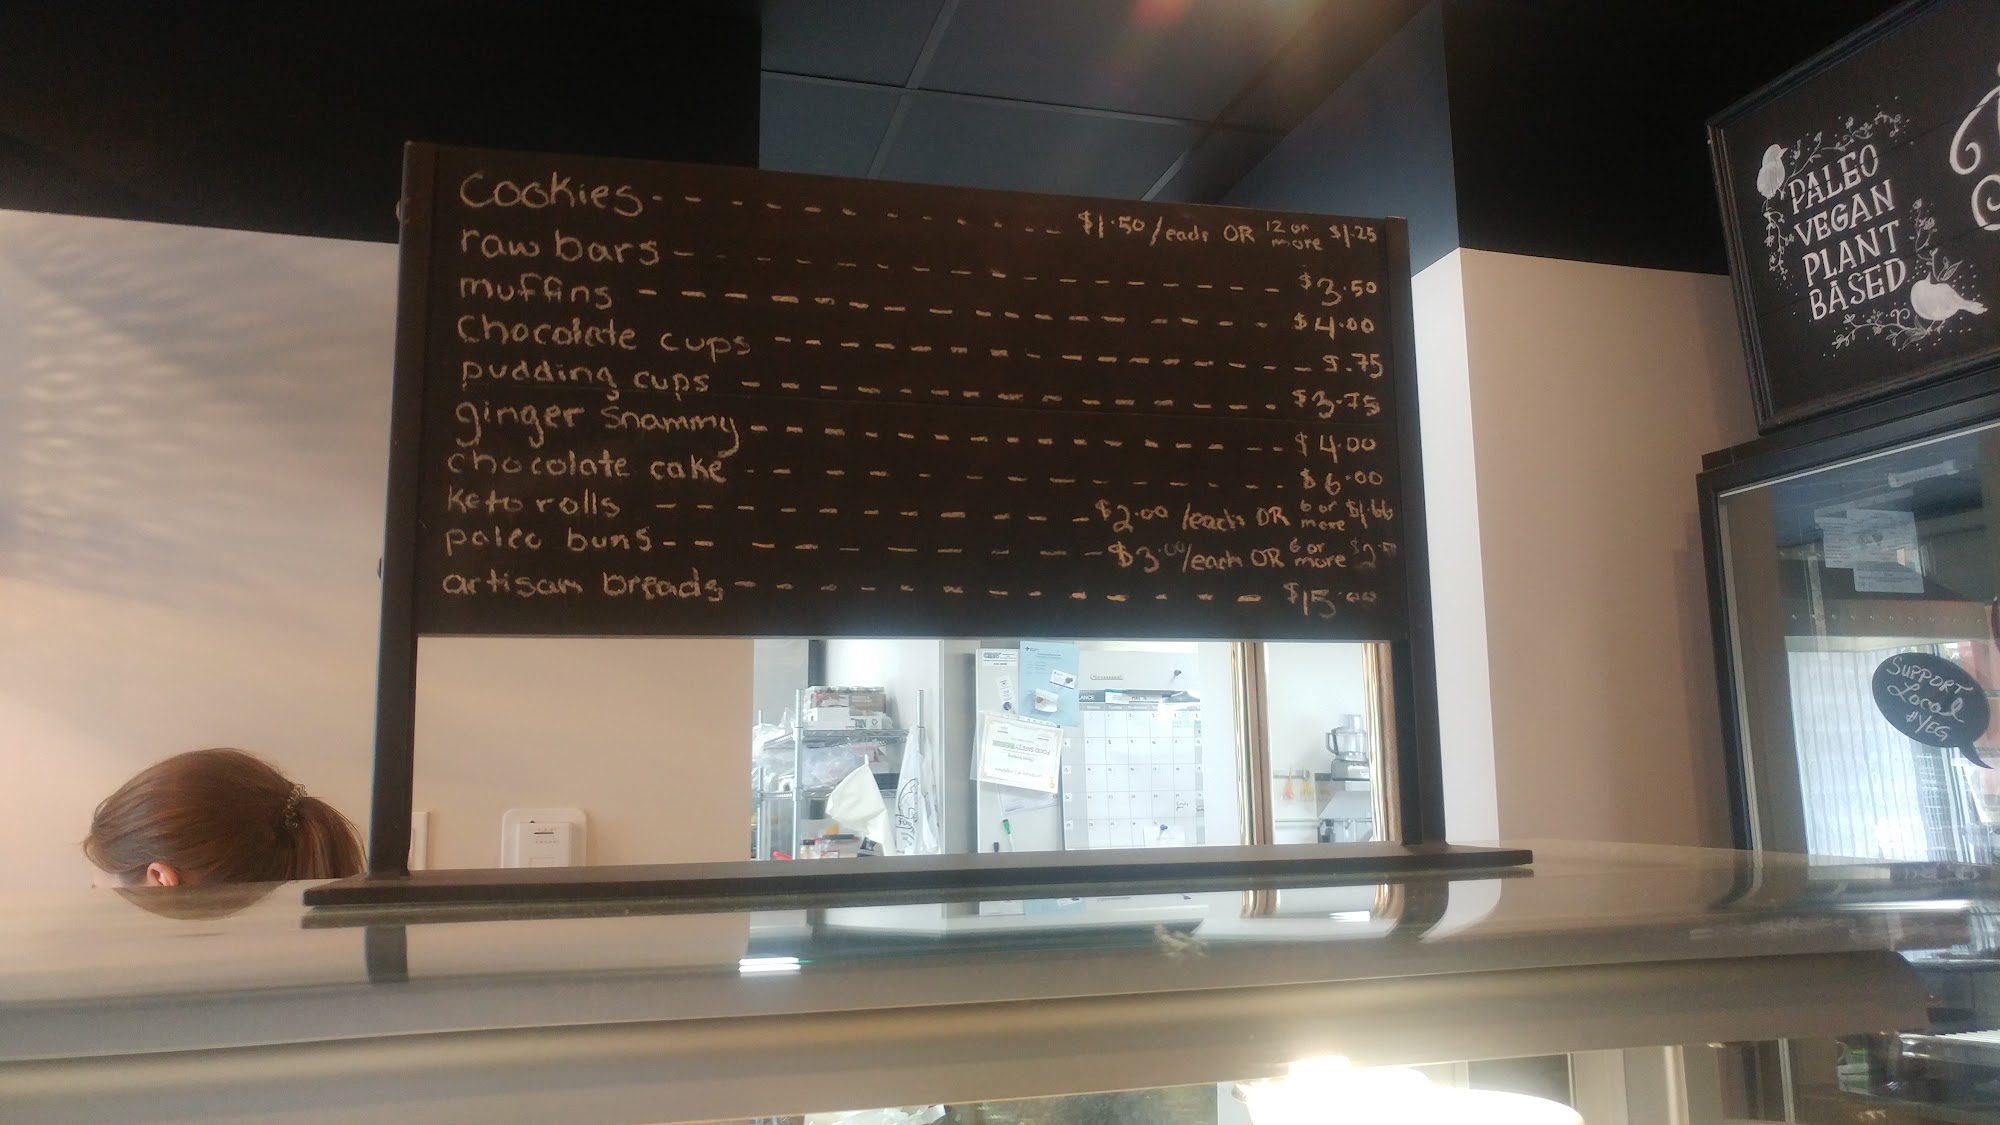 Cookies - - - - - - - - - - - - $1.50/each OR 12 or more $1.25
raw bars - - - - - - - - - - - - - - - $3.50
muffins - - - - - - - - - - - - - - - $4.00
Chocolate cups - - - - - - - - - - - - - $.75
pudding cups - - - - - - - - - - - - - - $3.75
ginger snammy - - - - - - - - - - - - - - $4.00
chocolate cake - - - - - - - - - - - - - $6.00
Keto rolls - - - - - - - - - - - $2.00/each OR 6 or more $1.66
paleo buns - - - - - - - - - - - $3.00/each OR 6 or more
artisan breads - - - - - - - - - - - - $15.00
PALEO
VEGAN
PLANT
BASED
SUPPORT
Local
#YEG